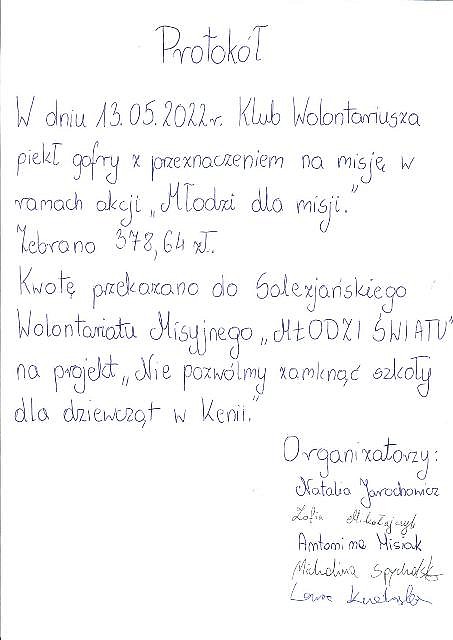 Protokół
W dniu 13.05.2022r. Klub Wolontariusza
piekł gofry z przeznaczeniem na misję w
ramach akcji „Młodzi dla misji.”
Zebrano 378,64 zł.
Kwotę przekazano do Salezjańskiego
Wolontariatu Misyjnego „MŁODZI ŚWIATU”
na projekt „Nie pozwólmy zamknąć szkoły
dla dziewcząt w Kenii.”
Organizatorzy:
Natalia Jarochowicz
Zofia Mikołajczyk
Antonina Misiak
Michalina Spychalska